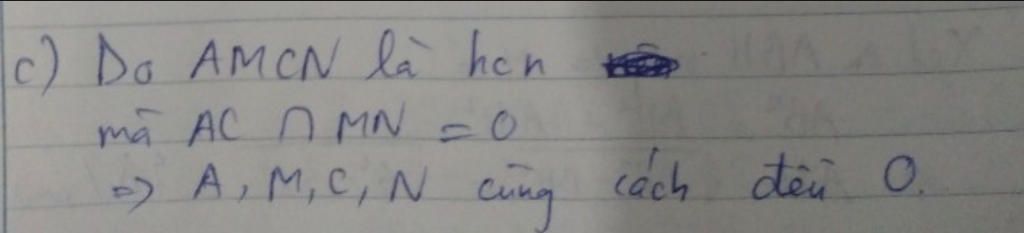 c) Do AMCN là hcn
mà AC ∩ MN = O
=> A, M, C, N cùng cách đều O.